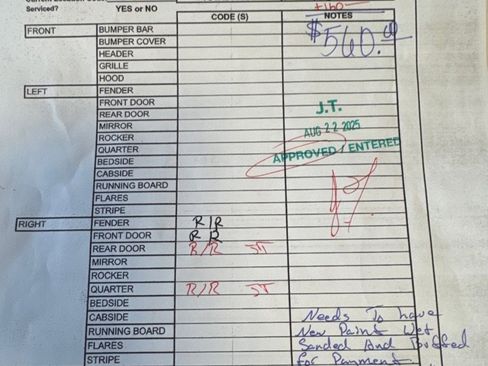 Serviced? YES or NO
CODE (S) NOTES
+160
FRONT BUMPER BAR $560.00
BUMPER COVER
HEADER
GRILLE
HOOD
LEFT FENDER
FRONT DOOR
REAR DOOR J.T.
MIRROR
ROCKER AUG 22 2025
QUARTER
BEDSIDE APPROVED / ENTERED
CABSIDE
RUNNING BOARD
FLARES
STRIPE
RIGHT FENDER R/R
FRONT DOOR R R
REAR DOOR R/R JT
MIRROR
ROCKER
QUARTER R/R JT
BEDSIDE
CABSIDE Needs To have
RUNNING BOARD New Paint Wet
FLARES Sanded And Buffed
STRIPE for Paymment